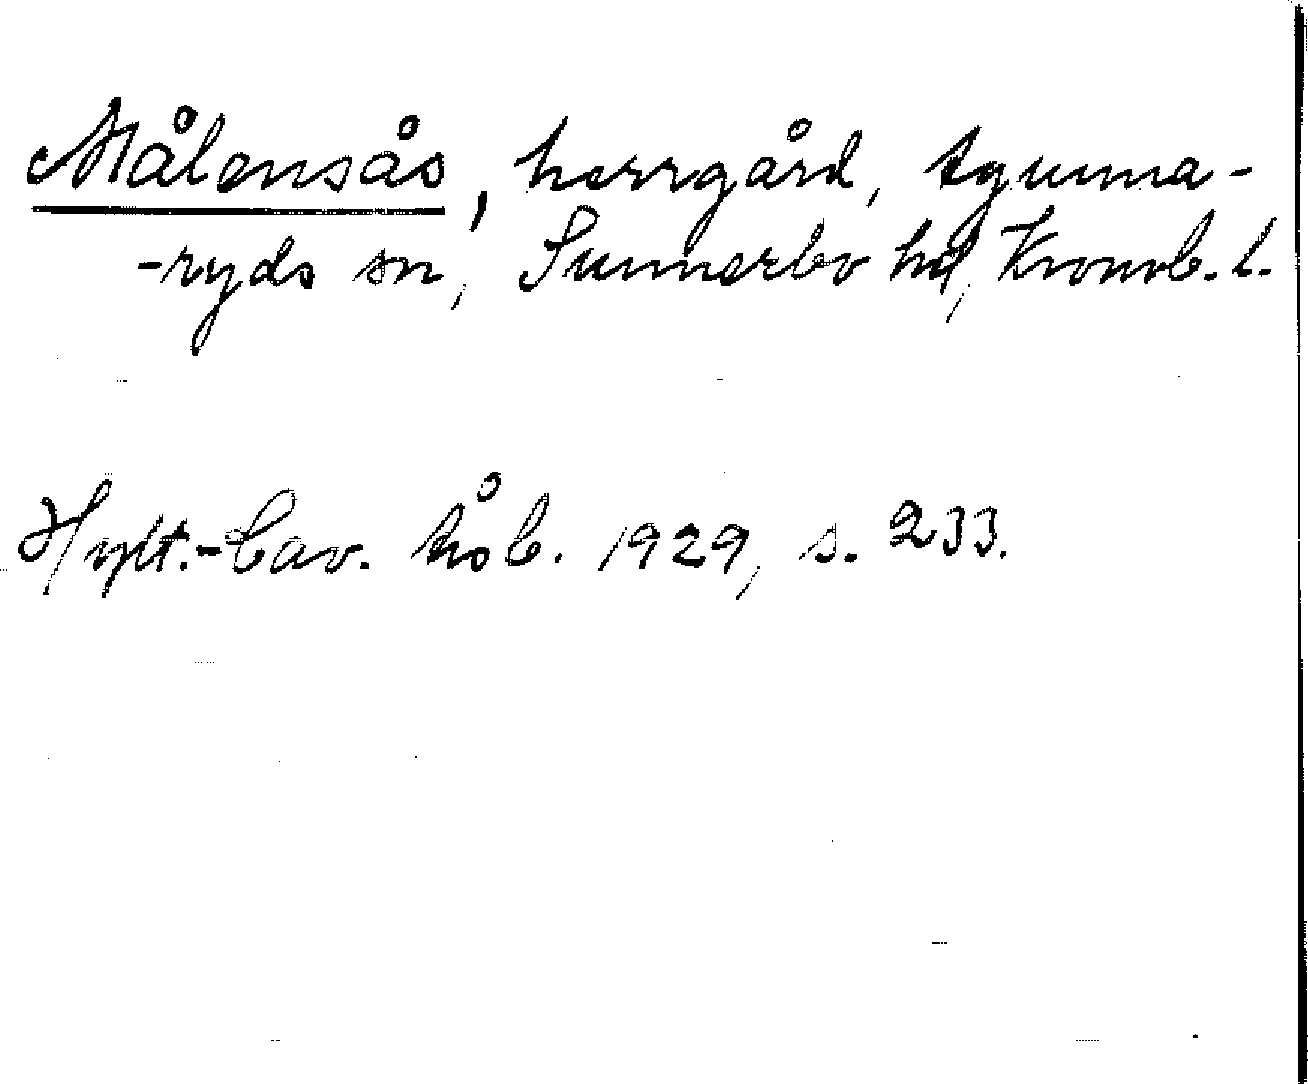 Målensås, herrgård, Agunna-
-ryds sn, Sunnerbo hd, Kronob. l.
Hylt.-Cav. håb. 1929, s. 233.